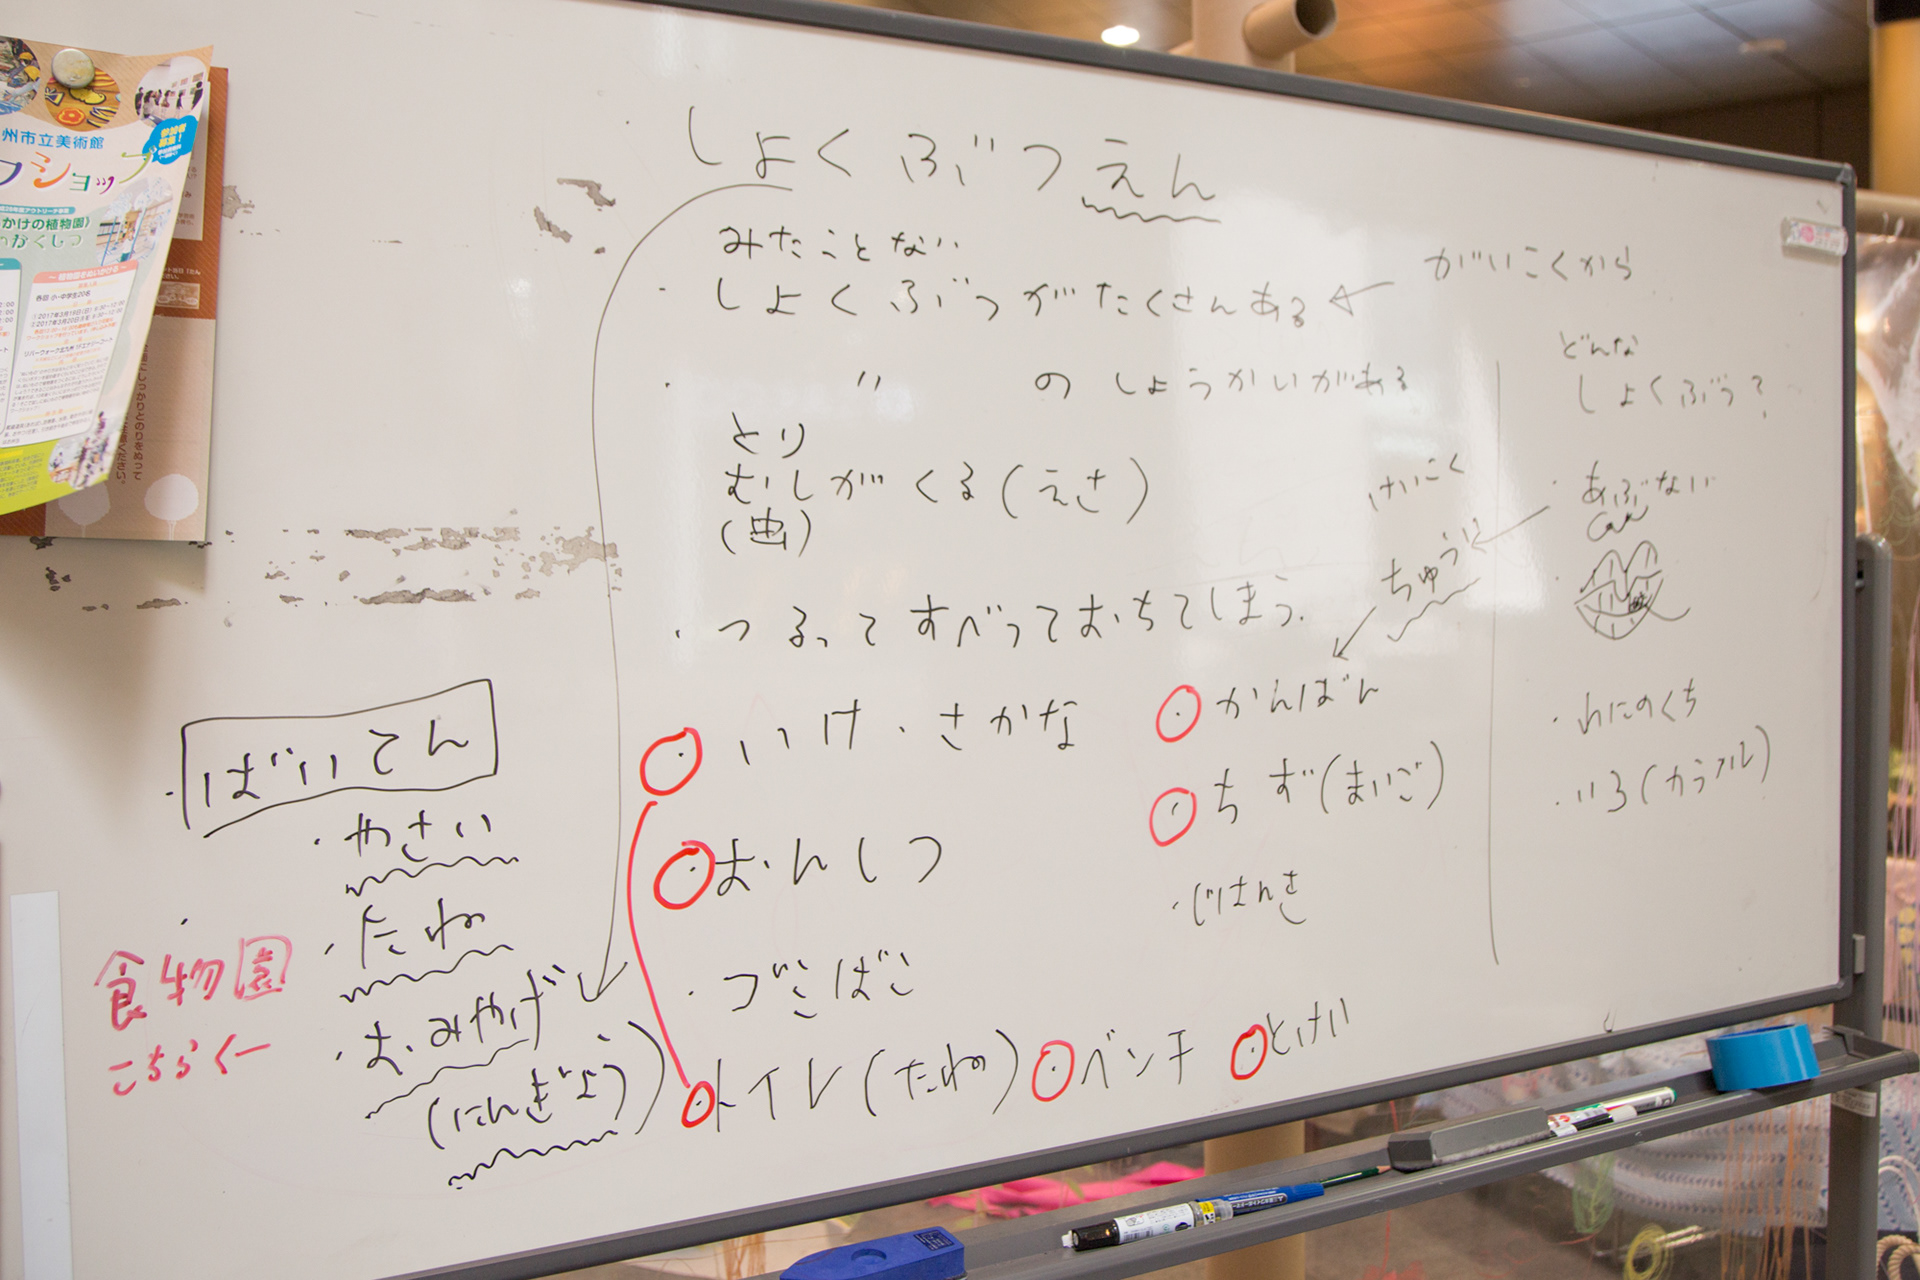 しょくぶつえん
みたことない
・しょくぶつがたくさんある ← がいこくから
・〃のしょうかいがある
とり
むしがくる(えさ)
(虫)
・つるってすべっておちてしまう.
・いけ・さかな
・おんしつ
・づこばこ
・トイレ(たね)
・ベンチ
・とけい
けいこく
ちゅうい
・かんばん
・ちず(まいご)
・じはんき
どんな
しょくぶつ?
・あぶない
・わにのくち
・いろ(カラフル)
・ばいてん
・やさい
・たね
・おみやげ
(にんぎょう)
食物園
こちらくー
州市立美術館
フショップ
参加者
募集!
かけの植物園》
各回 小・中学生20名
①2017年3月19日(日)
②2017年3月20日